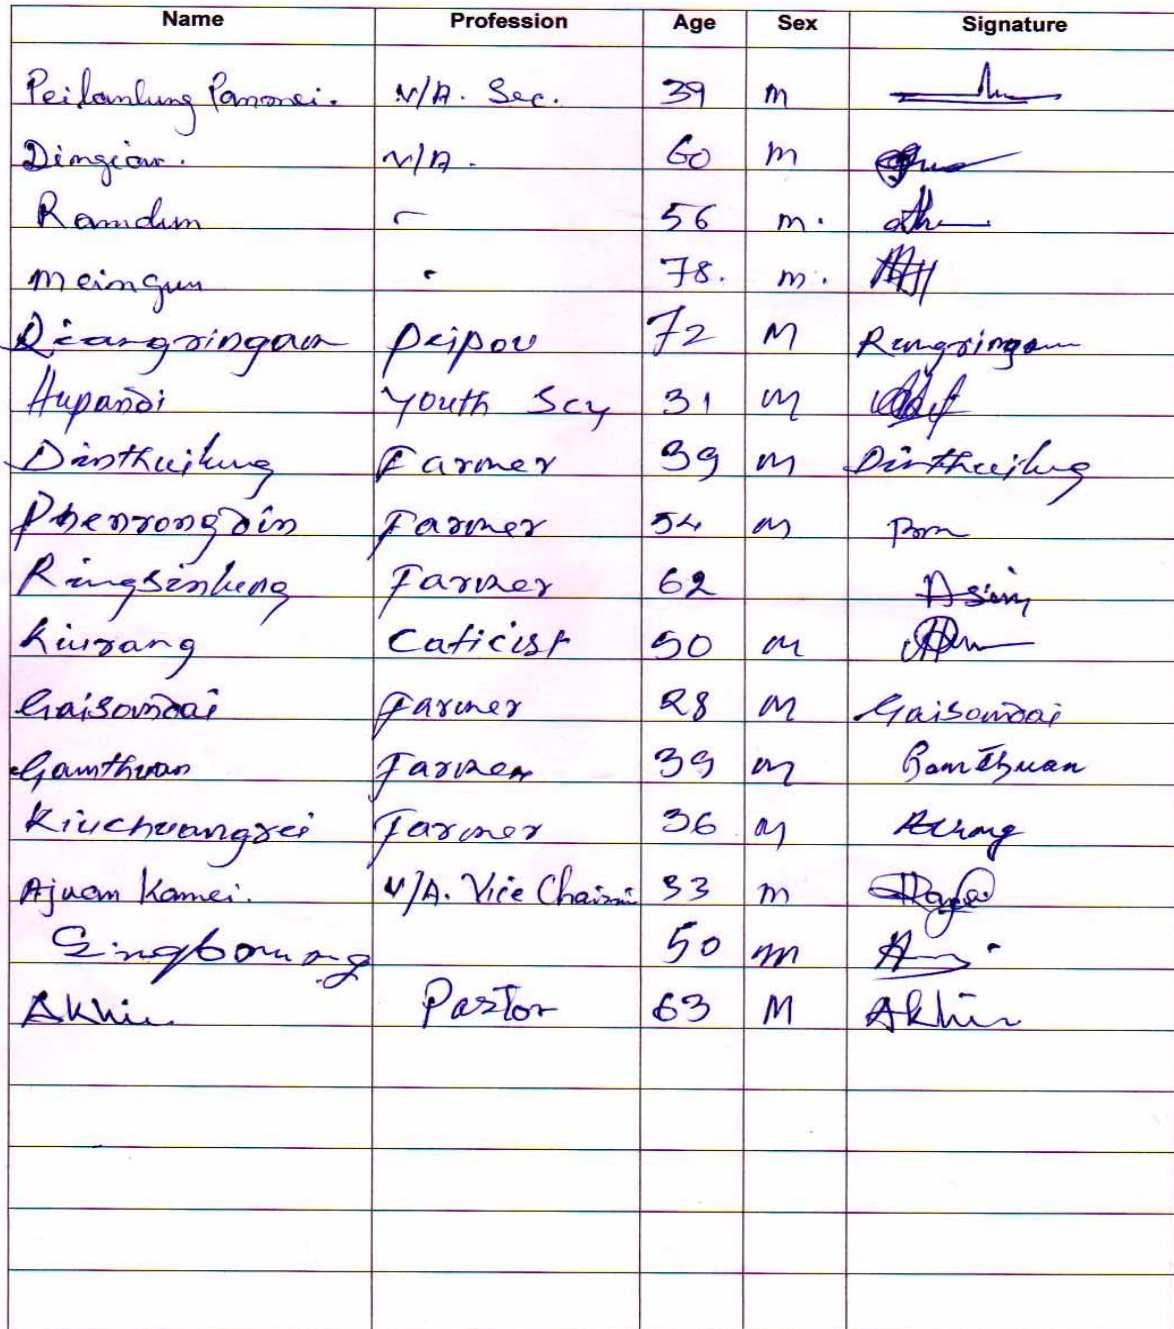 Name Profession Age Sex Signature
Peilanlung Panmei. V/A. Sec. 39 m
Dimgian. V/A. 60 m
Ramdim 56 m.
Meingun 78. m.
Diangringam Peipou 72 M Rangringam
Hupandi Youth Scy 31 m
Dinthuilung Farmer 39 m Dinthuilung
Phenrongdin Farmer 54 m
Ringsinlung Farmer 62 Asin
Kiurang Caticist 50 m
Gaisomdai Farmer 28 m Gaisomdai
Gamthuan Farmer 39 m Gamthuan
Kiuchuangrei Farmer 36 m
Ajuan Kamei. V/A. Vice Chairm 33 m
50 m
Akhin Pastor 63 M Akhin